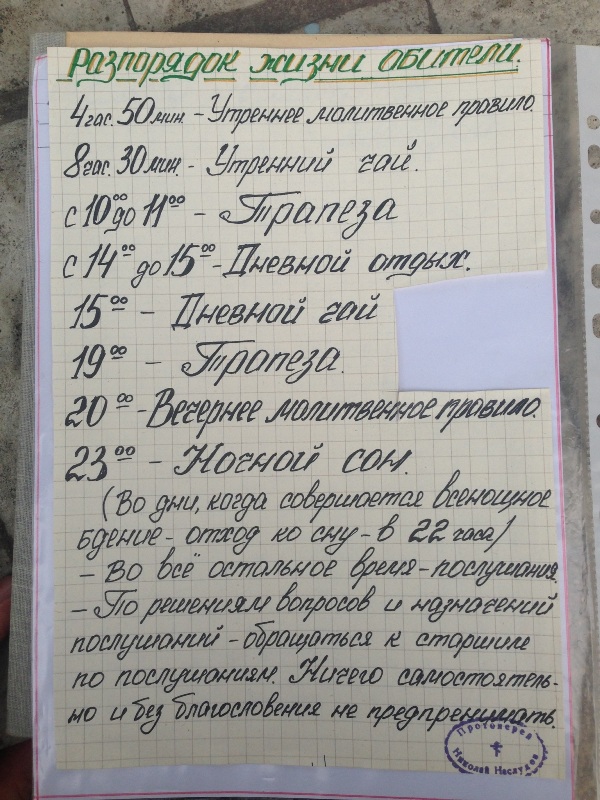 Разпорядок жизни обители.
4 час. 50 мин. - Утреннее молитвенное правило.
8 час. 30 мин. - Утренний чай.
с 10⁰⁰ до 11⁰⁰ - Трапеза
с 14⁰⁰ до 15⁰⁰ - Дневной отдых.
15⁰⁰ - Дневной чай
19⁰⁰ - Трапеза.
20⁰⁰ - Вечернее молитвенное правило.
23⁰⁰ - Ночной сон.
(Во дни, когда совершается всенощное
бдение - отход ко сну - в 22 часа)
- Во всё остальное время - послушания.
- По решениям вопросов и назначений
послушаний - обращаться к старшим
по послушаниям. Ничего самостоятель-
но и без благословения не предпренимать.
Протоиерей
Николай